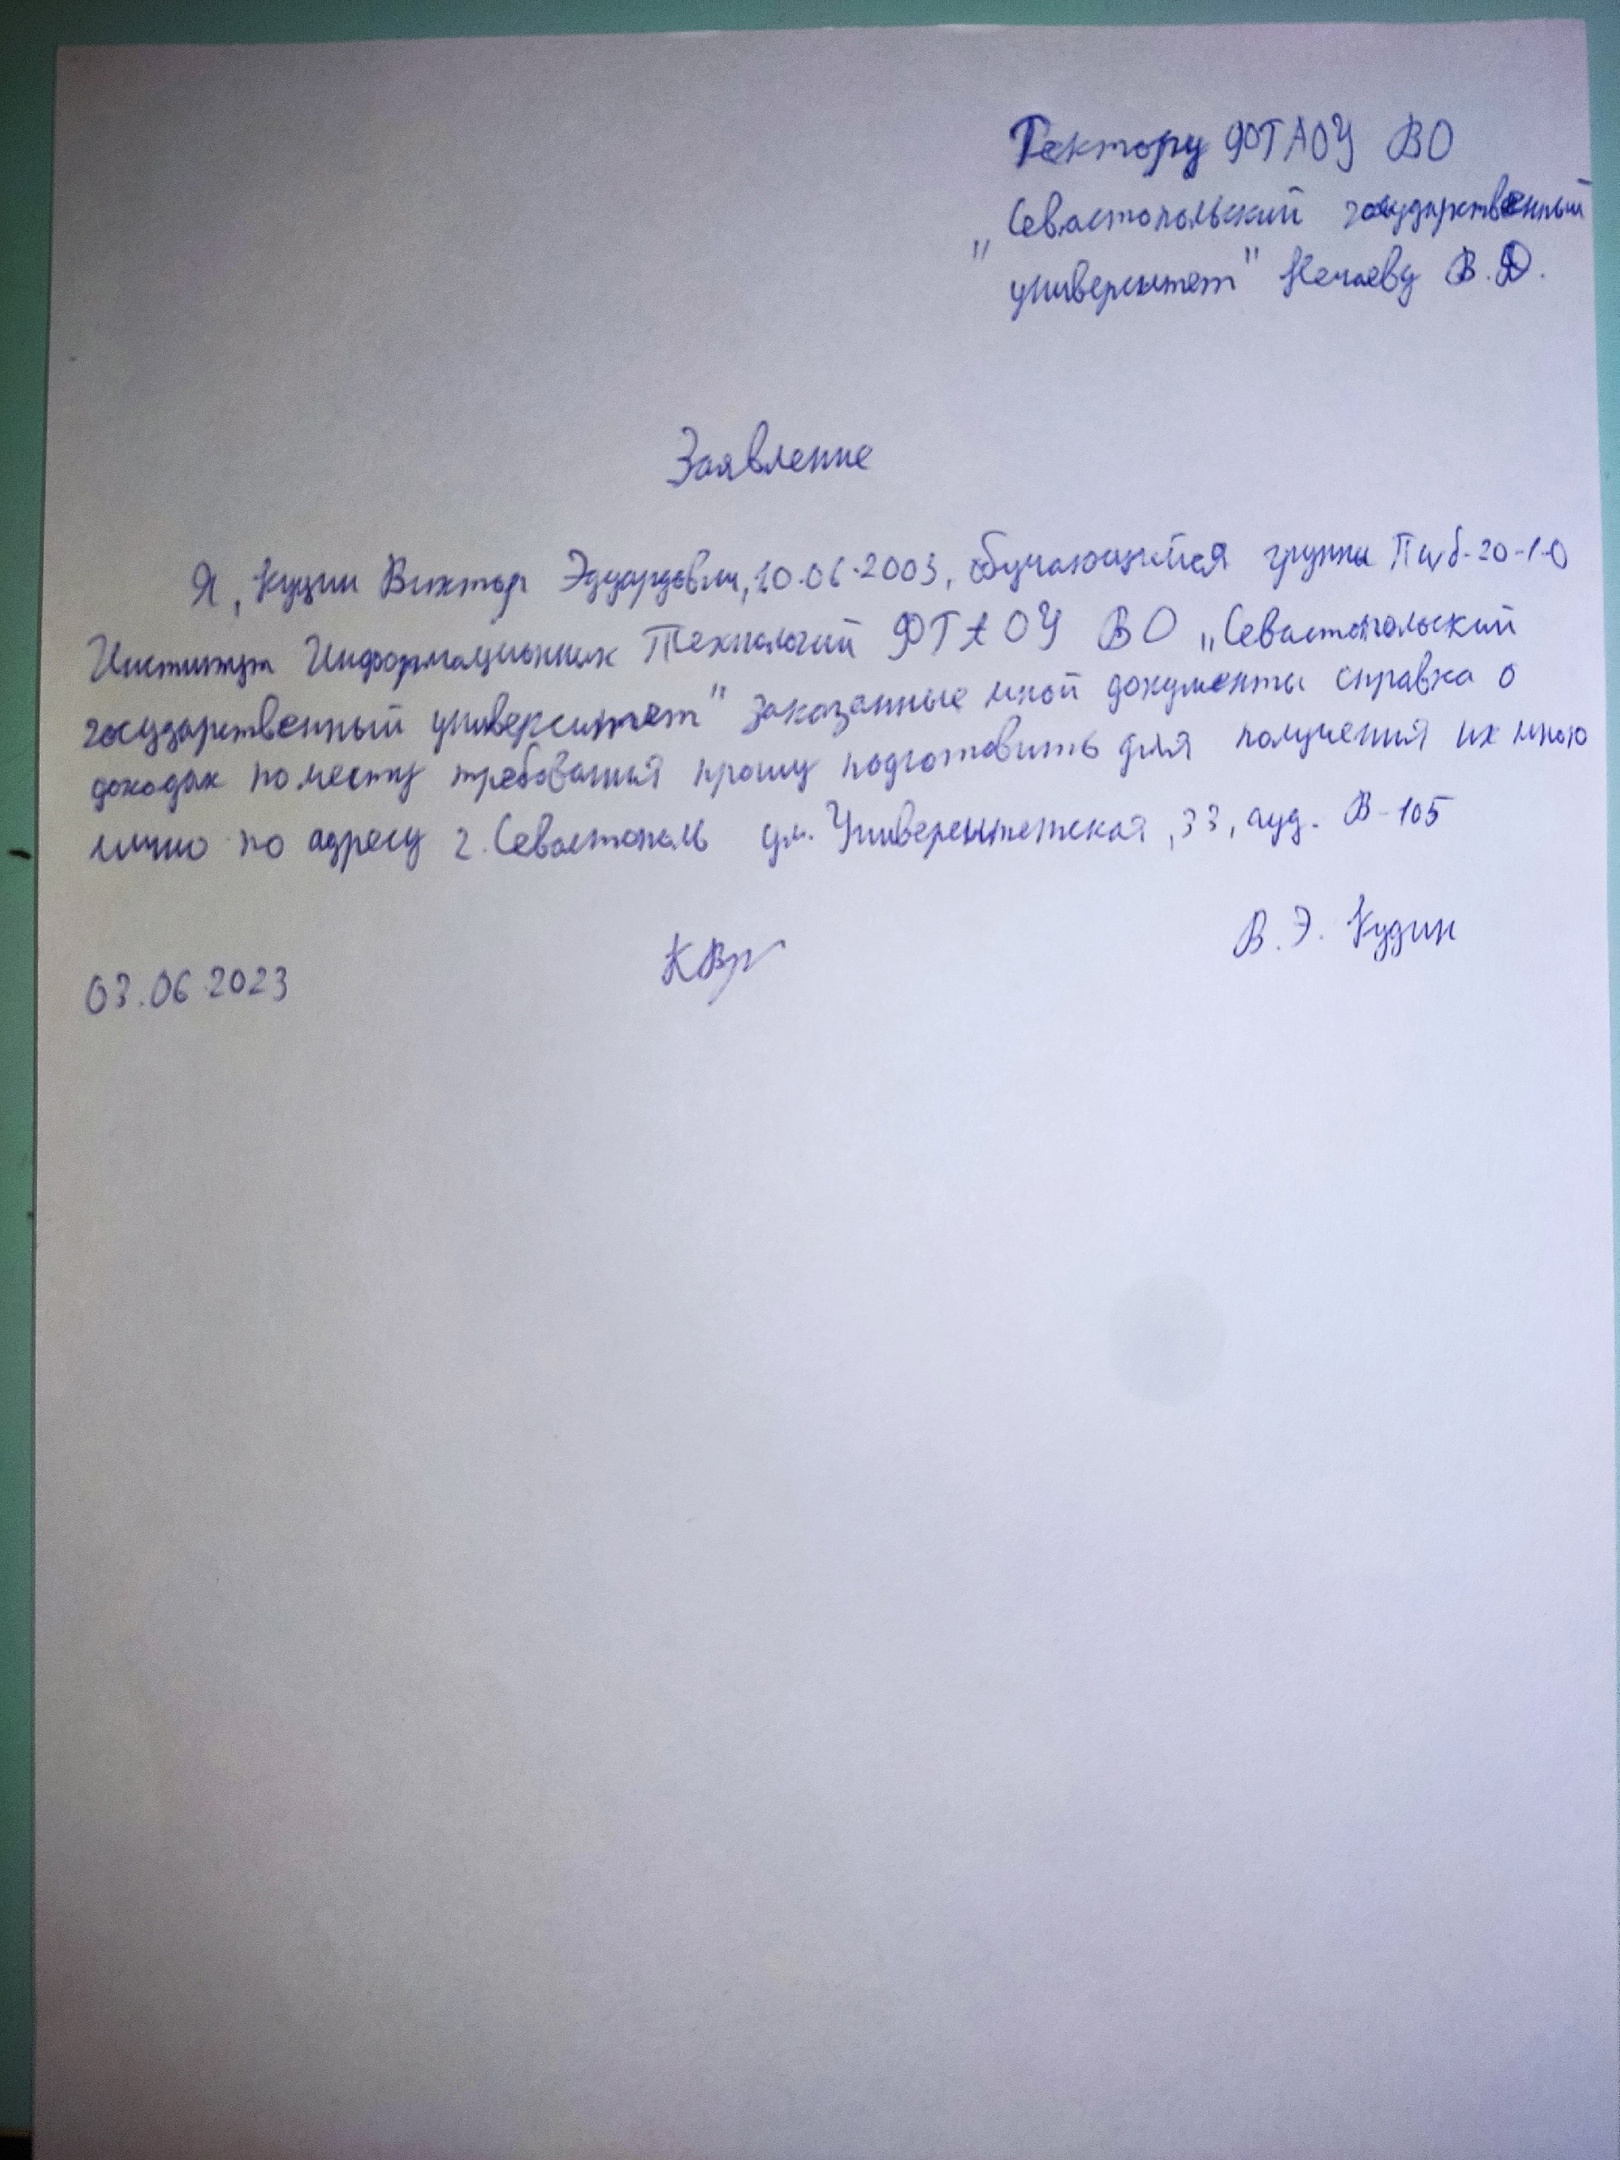 Ректору ФГАОУ ВО
"Севастопольский государственный
университет" Нечаеву В.Д.
Заявление
Я, Кудин Виктор Эдуардович, 10.06.2003, обучающийся группы Пи/б-20-1-О
Института Информационных Технологий ФГАОУ ВО „Севастопольский
государственный университет" заказанные мной документы справка о
доходах по месту требования прошу подготовить для получения их мною
лично по адресу г. Севастополь ул. Университетская, 33, ауд. В-105
В. Э. Кудин
03.06.2023